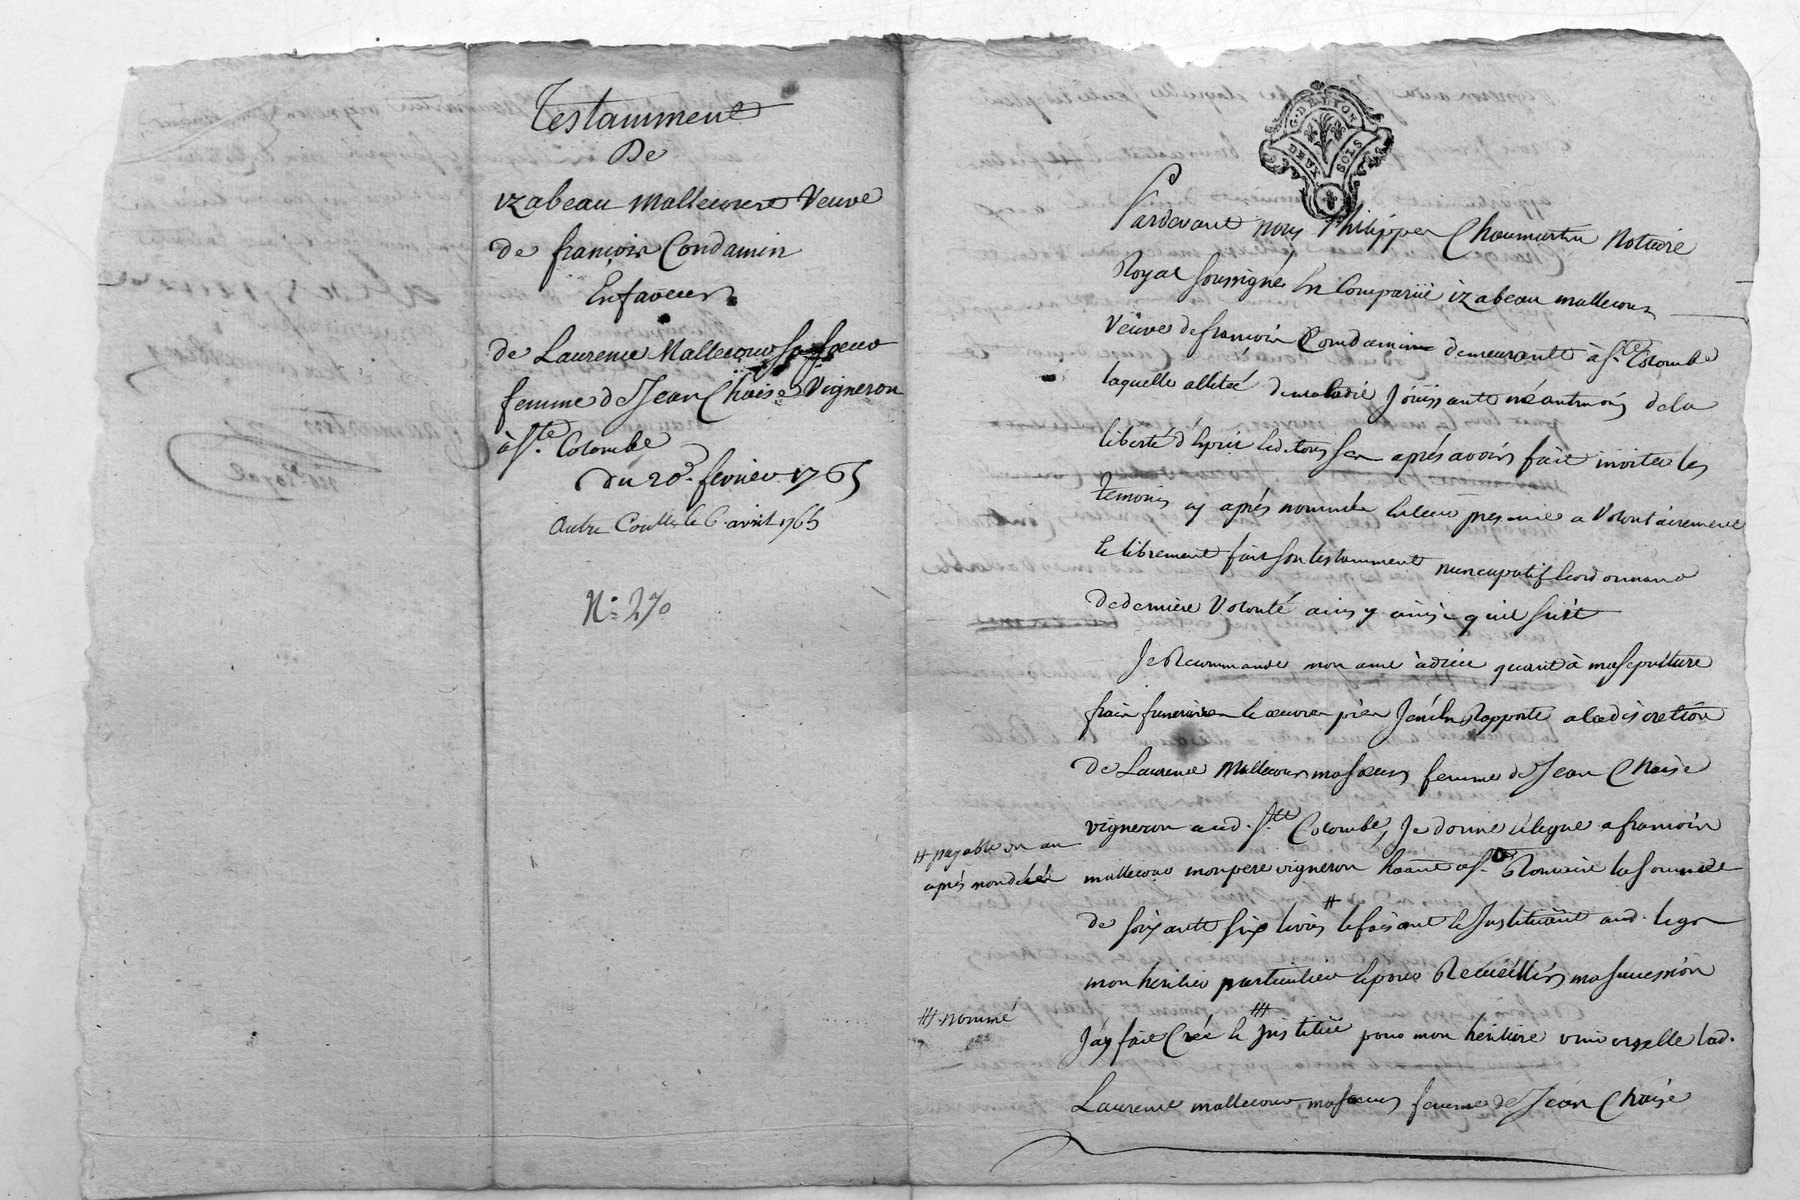 Testamment
De
izabeau Mallecour Veuve
de francois Condamin
En faveur
de Laurence Mallecour sa soeur
femme de Jean Chaise Vigneron
à Ste. Colombe
du 20e. fevrier 1765
Autre Coultte le 6 avril 1765
N.º 270
G. DE LYON
DEUX SOLS
Pardevant nous Philippes Chaumartin Notaire
Royal soussigné En Comparüe izabeau mallecour
Veuve de francois Condamin demeurantte à Ste. Colombe
laquelle allitée de maladie Jöuissantte néantmois de la
liberté d'Esprit led tous sen aprés avoirs fait inviter les
Temoins cy aprés nommés En leur presence a Volontairement
Et librement fait son testamment nuncupatif Et ordonnance
De derniere Volonté ainsy qu'il suit
Je Recommande mon ame à dieu quant à ma sepulture
frais funeraires Et oeuvres pies Je m'En Rapporte a la discretion
De Laurence Mallecour ma soeur femme de Jean Chaise
vigneron aud. Ste. Colombe, Je donne et legue a francois
mallecour mon pere vigneron habitant a St. Romain la somme
de soixantte six livres # le faisant Et Instituant aud. legs
# payable un an
aprés mon décés
mon heritier particulier Et pour Recüeillirs ma succession
J'ay fait Créé Et # institüé pour mon heritiere universelle lad.
# nommé
Laurence mallecour ma soeur femme de Jean Chaise